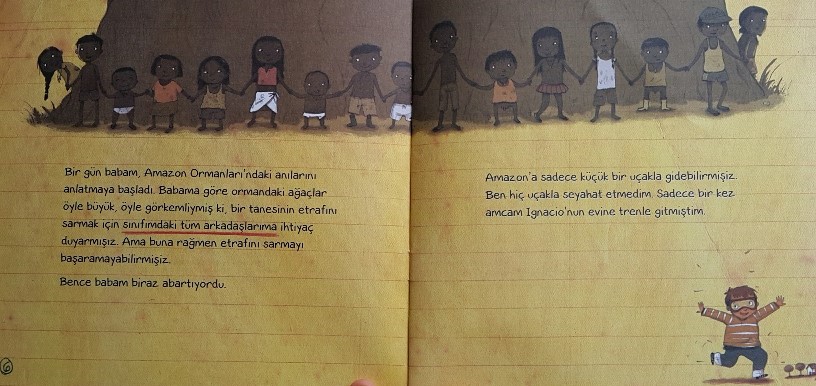 Bir gün babam, Amazon Ormanları'ndaki anılarını
anlatmaya başladı. Babama göre ormandaki ağaçlar
öyle büyük, öyle görkemliymiş ki, bir tanesinin etrafını
sarmak için sınıfımdaki tüm arkadaşlarıma ihtiyaç
duyarmışız. Ama buna rağmen etrafını sarmayı
başaramayabilirmişiz.
Bence babam biraz abartıyordu.
6
Amazon'a sadece küçük bir uçakla gidebilirmişiz.
Ben hiç uçakla seyahat etmedim. Sadece bir kez
amcam Ignacio'nun evine trenle gitmiştim.